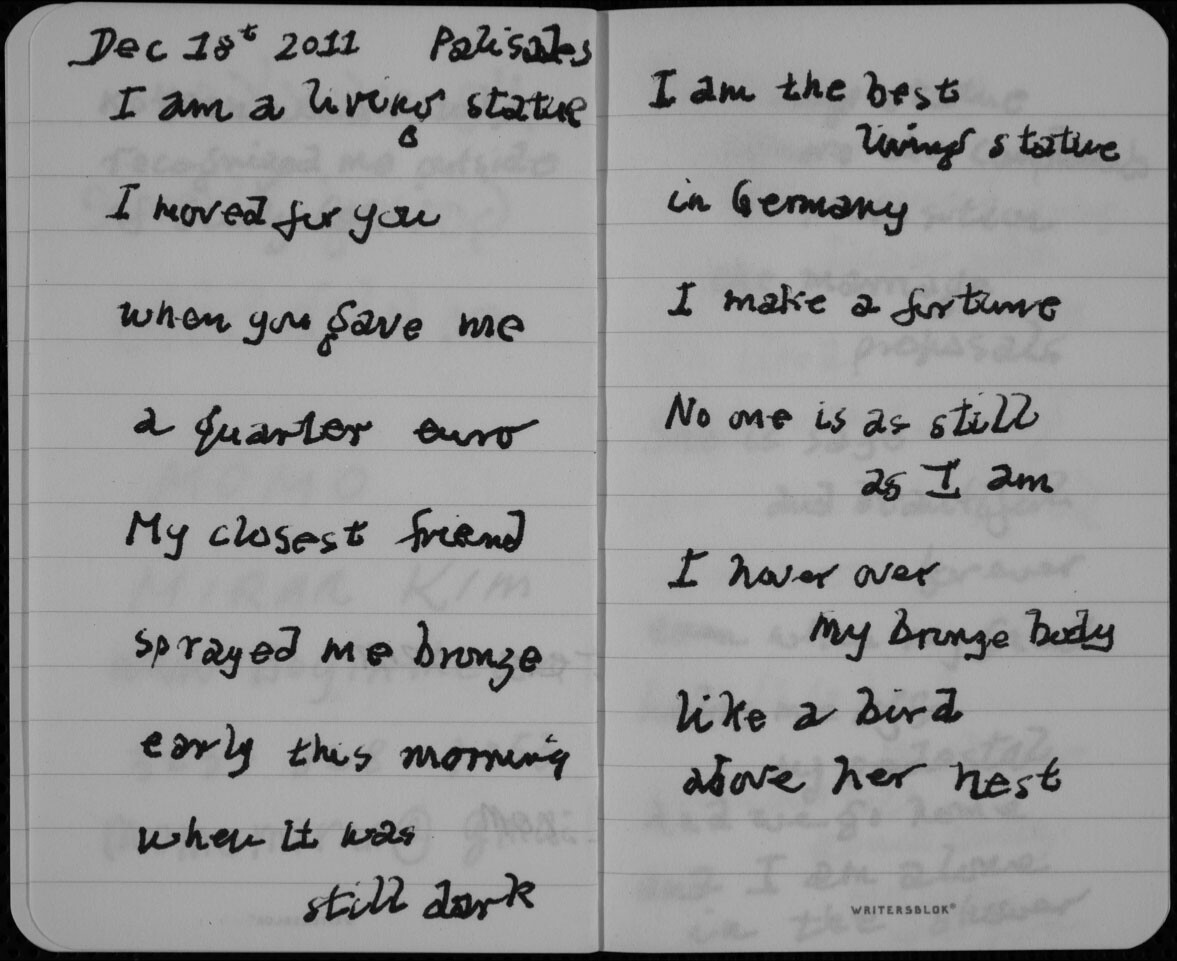 Dec 18t 2011 Palisades
I am a living statue
I moved for you
when you gave me
a quarter euro
My closest friend
sprayed me bronze
early this morning
when it was
still dark
I am the best
living statue
in Germany
I make a fortune
No one is as still
as I am
I hover over
my bronze body
like a bird
above her nest
WRITERSBLOK®